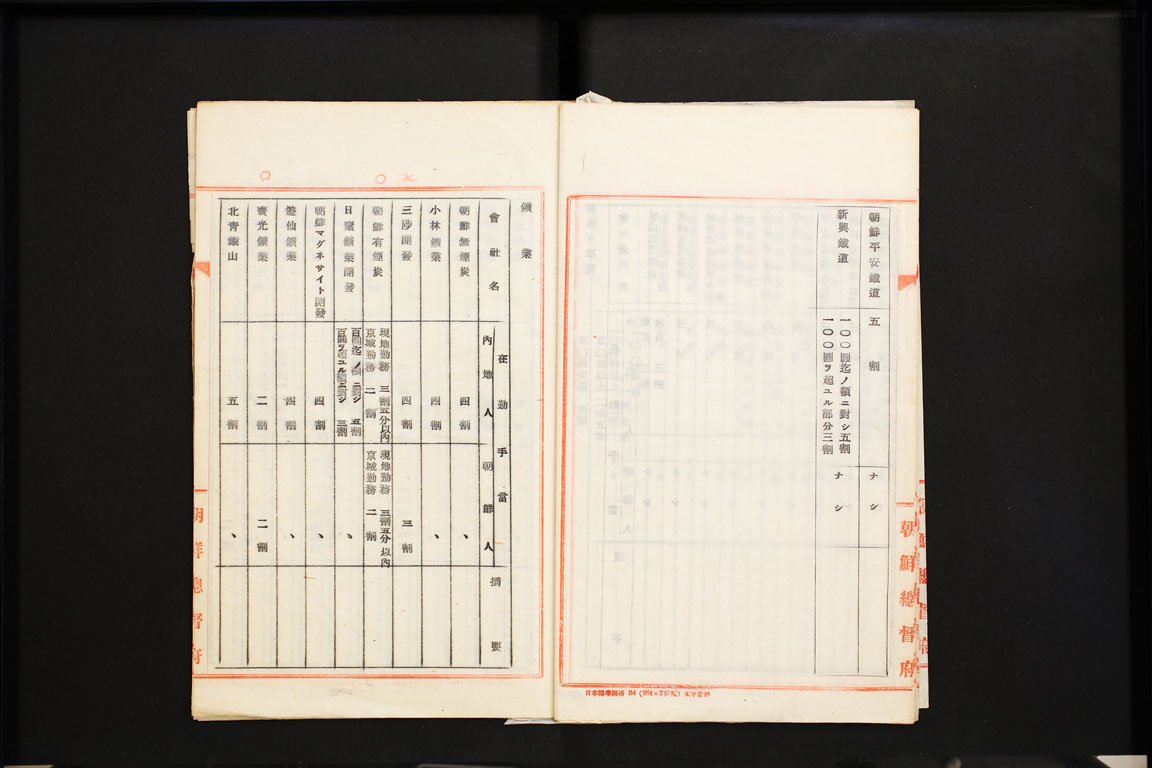 朝鮮平安鐵道 五割 ナシ
新興鐵道 一〇〇圓迄ノ額ニ對シ五割 ナシ
一〇〇圓ヲ超ユル部分三割
朝鮮總督府
日本標準規格 B4
鑛業
會社名 在勤手當 摘要
內地人 朝鮮人
朝鮮無煙炭 四割 、
小林鑛業 四割 、
三陟開發 四割 三割
朝鮮有煙炭 現地勤務 三割五分以內 現地勤務 三割五分以內
京城勤務 二割 京城勤務 二割
日窒鑛業開發 百圓迄ノ額ニ對シ 五割 、
百圓ヲ超ユル額ニ對シ 三割
朝鮮マグネサイト開發 四割 、
遊仙鑛業 四割 、
寶光鑛業 二割 二割
北靑鑛山 五割 、
朝鮮總督府